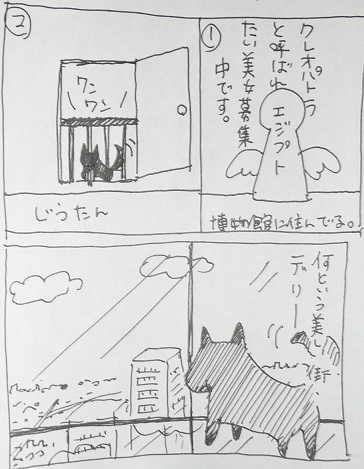 ①
クレオパトラ
と呼ばれ
たい美女募集
中です。
エジプト
博物館に住んでる。
②
ワン
ワン
じうたん
何という美し
い街、
デリー